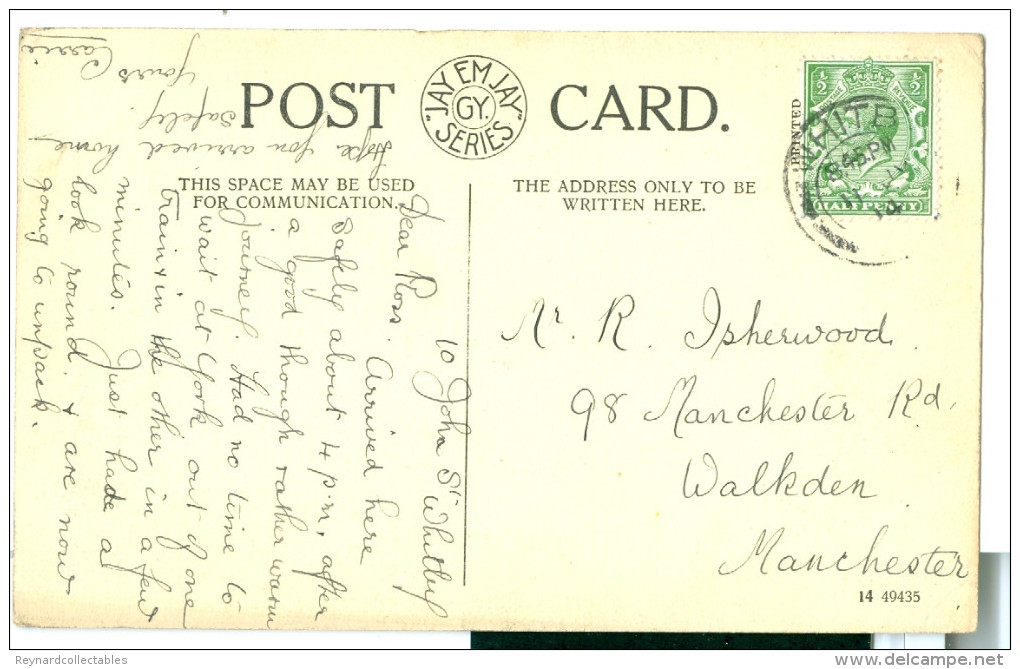 POST CARD.
"JAY EM JAY" GY. SERIES
THIS SPACE MAY BE USED
FOR COMMUNICATION.
THE ADDRESS ONLY TO BE
WRITTEN HERE.
PRINTED
1/2 1/2
HALFPENNY
WHITB
8.45 PM
11
14
10 John St Whitby
Dear Ross. Arrived here
safely about 4 p.m, after
a good though rather warm
journey. Had no time to
wait at York out of one
train & in the other in a few
minutes. Just had a
look round & are now
going to unpack.
Hope you arrived home
safely.
Yours Cassie
Mr. R. Isherwood.
98 Manchester Rd.
Walkden
Manchester
14 49435
Reynardcollectables
delcampe.net